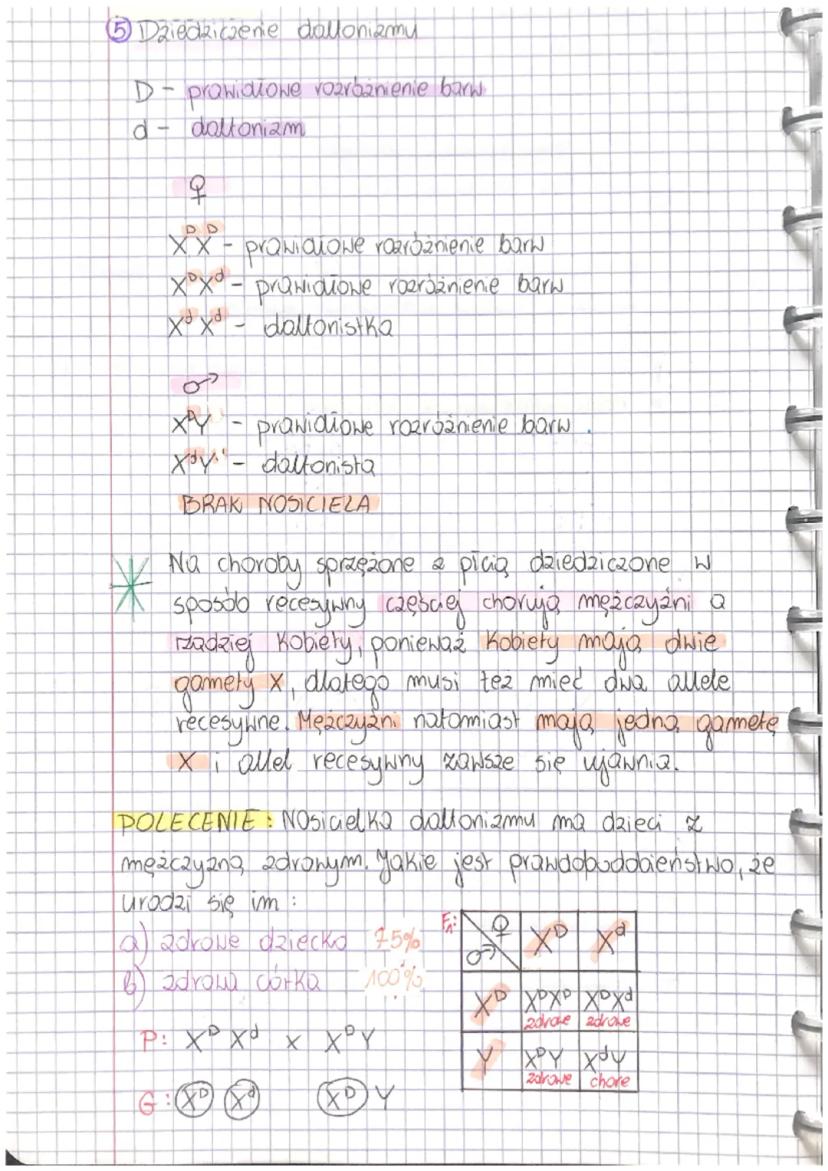 5 Dziedziczenie daltonizmu
D - prawidłowe rozróżnienie barw
d - daltonizm
♀
XᴰXᴰ - prawidłowe rozróżnienie barw
XᴰXᵈ - prawidłowe rozróżnienie barw
XᵈXᵈ - daltonistka
♂
XᴰY - prawidłowe rozróżnienie barw
XᵈY - daltonista
BRAK NOSICIELA
Na choroby sprzężone z płcią dziedziczone w
sposób recesywny częściej chorują mężczyźni a
rzadziej kobiety, ponieważ kobiety mają dwie
gamety X, dlatego musi też mieć dwa allele
recesywne. Mężczyźni natomiast mają jedną gametę
X i allel recesywny zawsze się ujawnia.
POLECENIE: Nosicielka daltonizmu ma dzieci z
mężczyzną zdrowym. Jakie jest prawdopodobieństwo, że
urodzi się im:
a) zdrowe dziecko 75%
b) zdrowa córka 100%
P: Xᴰ Xᵈ x XᴰY
G: Xᴰ Xᵈ Xᴰ Y
F₁: ♀ ♂ Xᴰ Xᵈ
Xᴰ XᴰXᴰ XᴰXᵈ
zdrowe zdrowe
Y XᴰY XᵈY
zdrowe chore